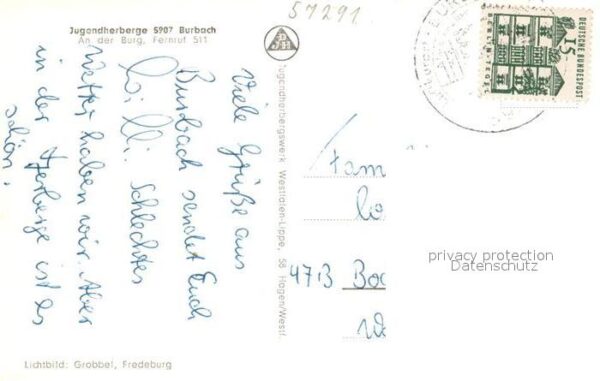 57291
Jugendherberge 5907 Burbach
An der Burg, Fernruf 511
Viele Grüße aus
Burbach sendet Euch
Willi. Schlechtes
Wetter haben wir. Aber
in der Herberge ist es
schön.
Lichtbild: Grobbel, Fredeburg
Jugendherbergswerk Westfalen-Lippe, 58 Hagen/Westf.
DJH
DEUTSCHE BUNDESPOST
15
BERLIN-TEGEL
Fam
4713 Boc
privacy protection
Datenschutz